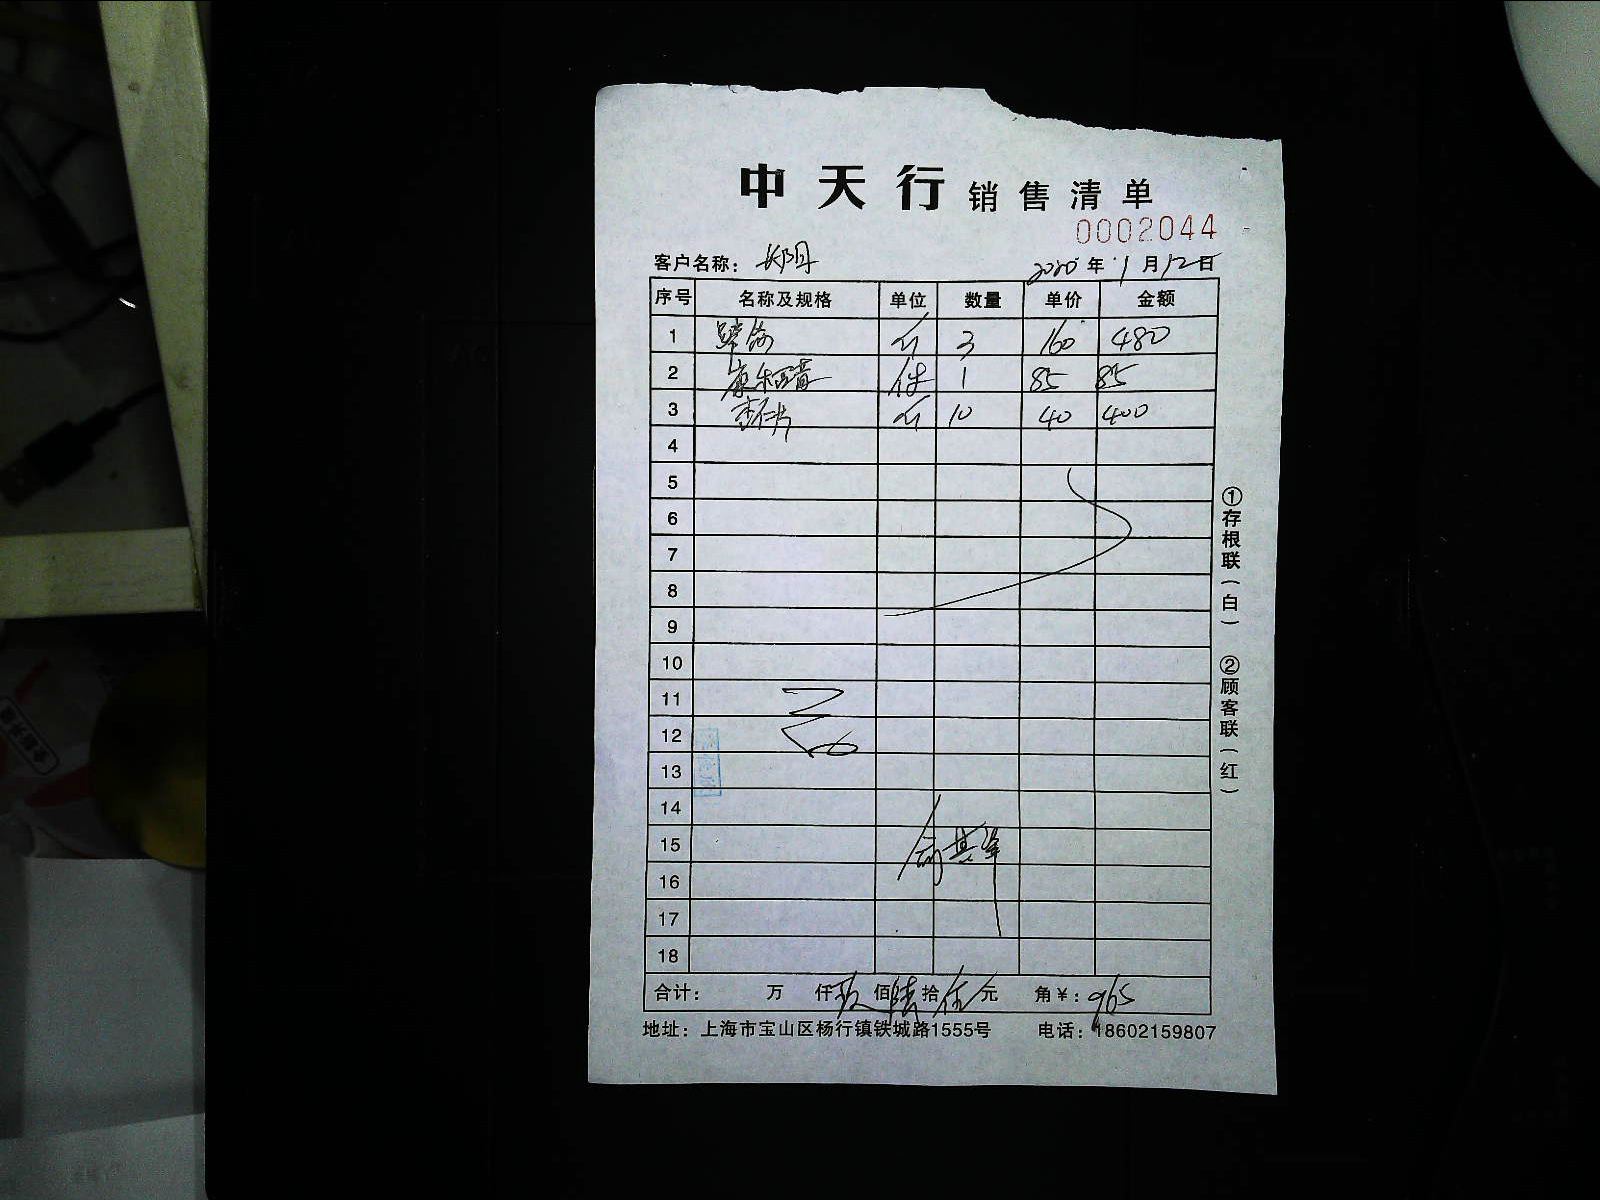 中天行 销售清单
0002044
客户名称：
2020年 1月12日
序号 名称及规格 单位 数量 单价 金额
1 蹄筋 个 3 160 480
2 件 1 85 85
3 杏仁片 个 10 40 400
4
5
6
7
8
9
10
11
12
13
14
15
16
17
18
合计： 万 仟玖佰陆拾伍元 角￥：965
地址：上海市宝山区杨行镇铁城路1555号 电话：18602159807
①存根联（白） ②顾客联（红）